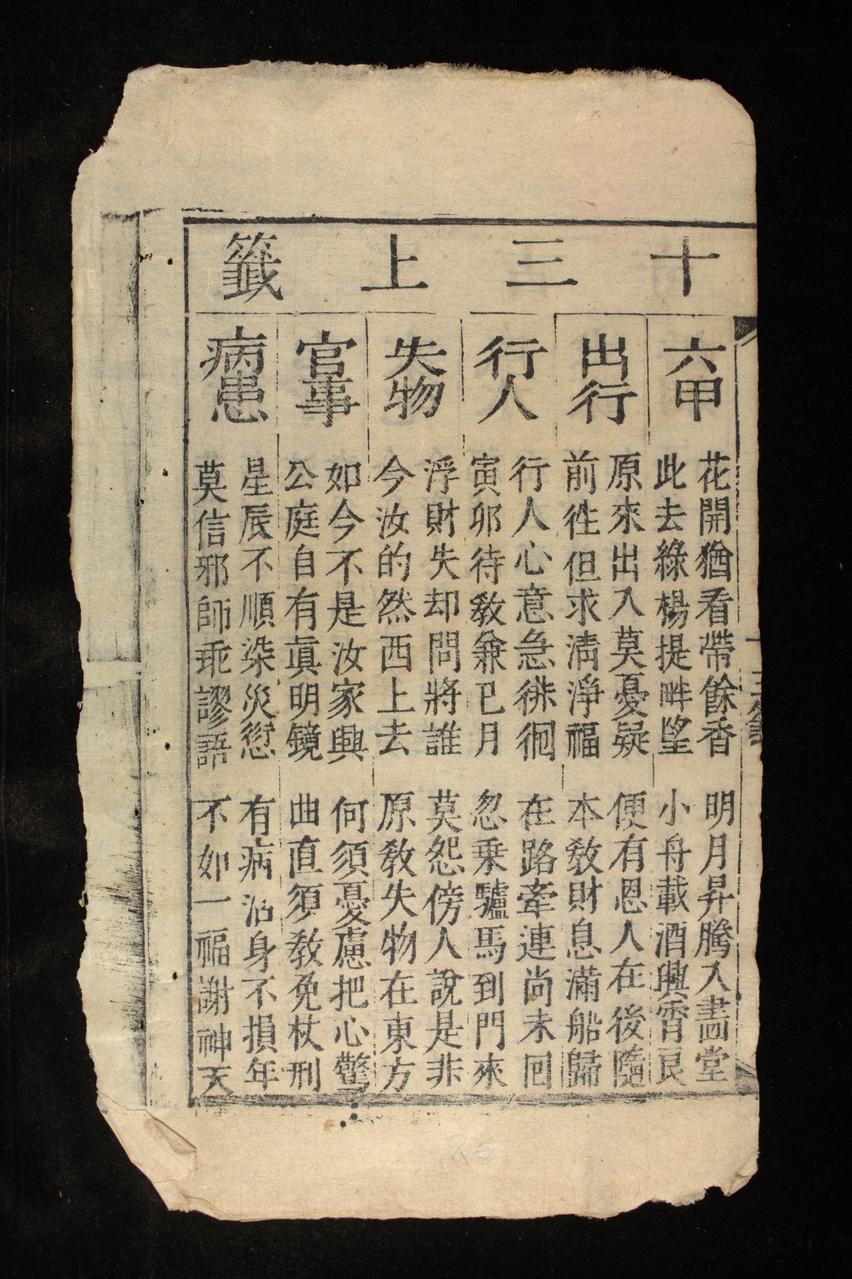 十三上籤
六甲
花開猶看帶餘香 明月昇騰入畵堂
此去綠楊提畔望 小舟載酒興霄良
出行
原來出入莫憂疑 便有恩人在後隨
前徃但求清淨福 本教財息滿船歸
行人
行人心意急徘徊 在路牽連尚未回
寅卯待教兼巳月 忽乘驢馬到門來
失物
浮財失却問將誰 莫怨傍人說是非
今汝的然西上去 原教失物在東方
官事
如今不是汝家興 何須憂慮把心驚
公庭自有眞明镜 曲直須教免杖刑
病患
星辰不順染災愆 有病沾身不損年
莫信邪師乖謬語 不如一福謝神天